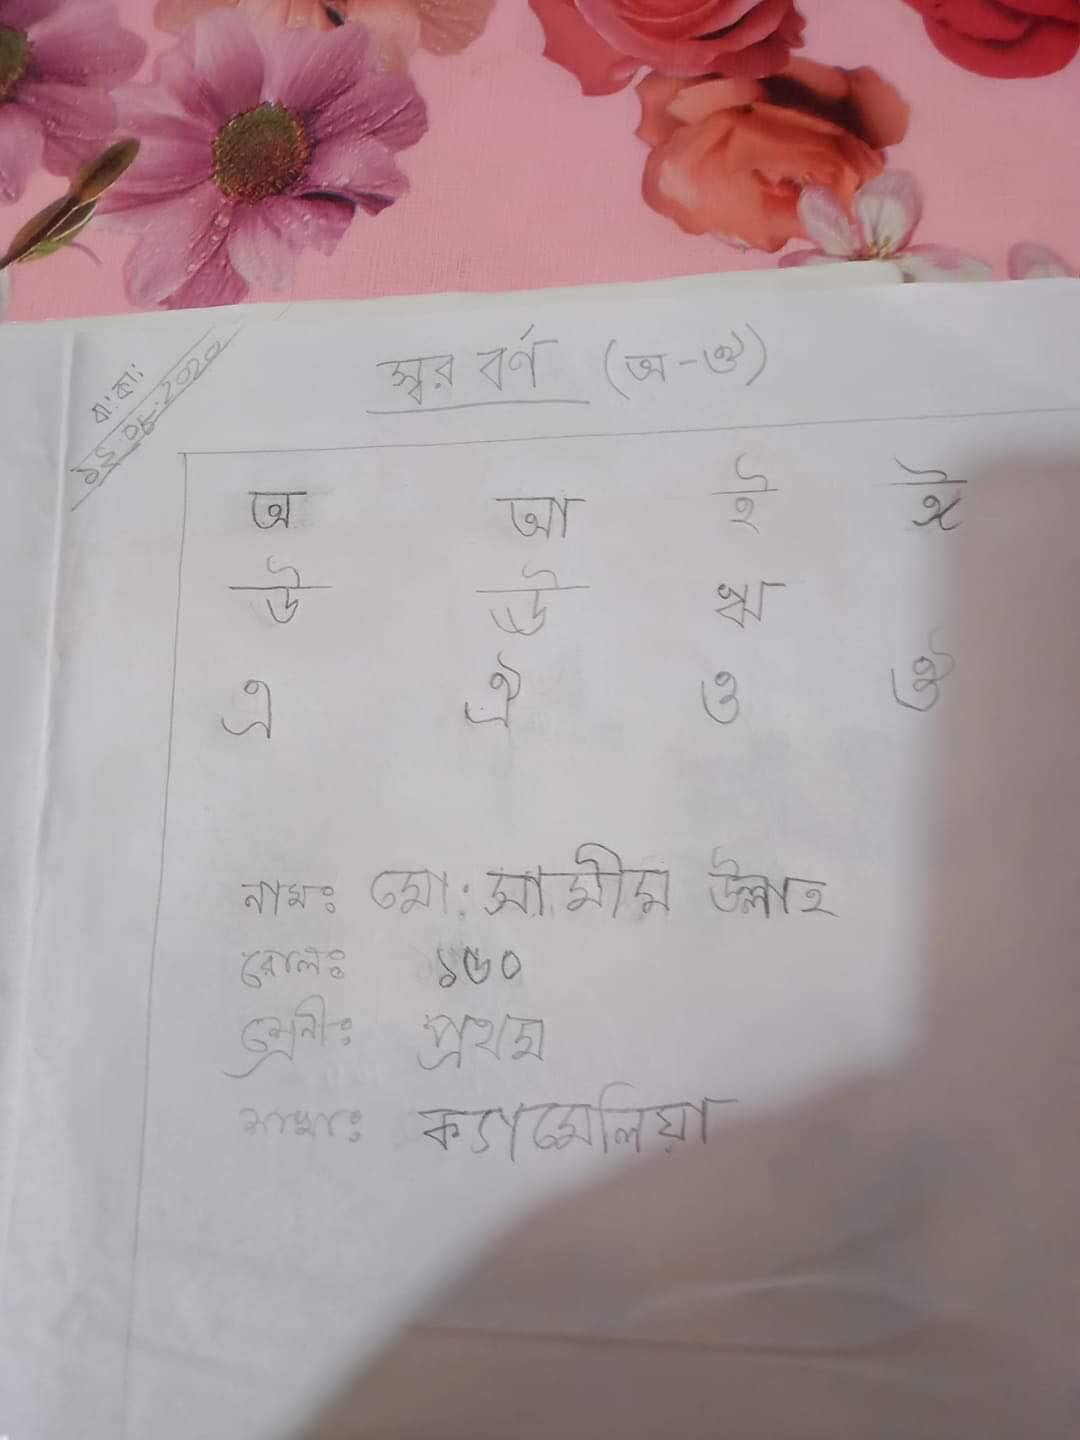 বা:কা:
স্বর বর্ণ (অ-ঔ)
অ আ ই ঈ
উ ঊ ঋ
এ ঐ ও ঔ
নামঃ মো: সামীম উল্লাহ
রোলঃ ১৬০
শ্রেনীঃ প্রথম
শাখাঃ ক্যামেলিয়া